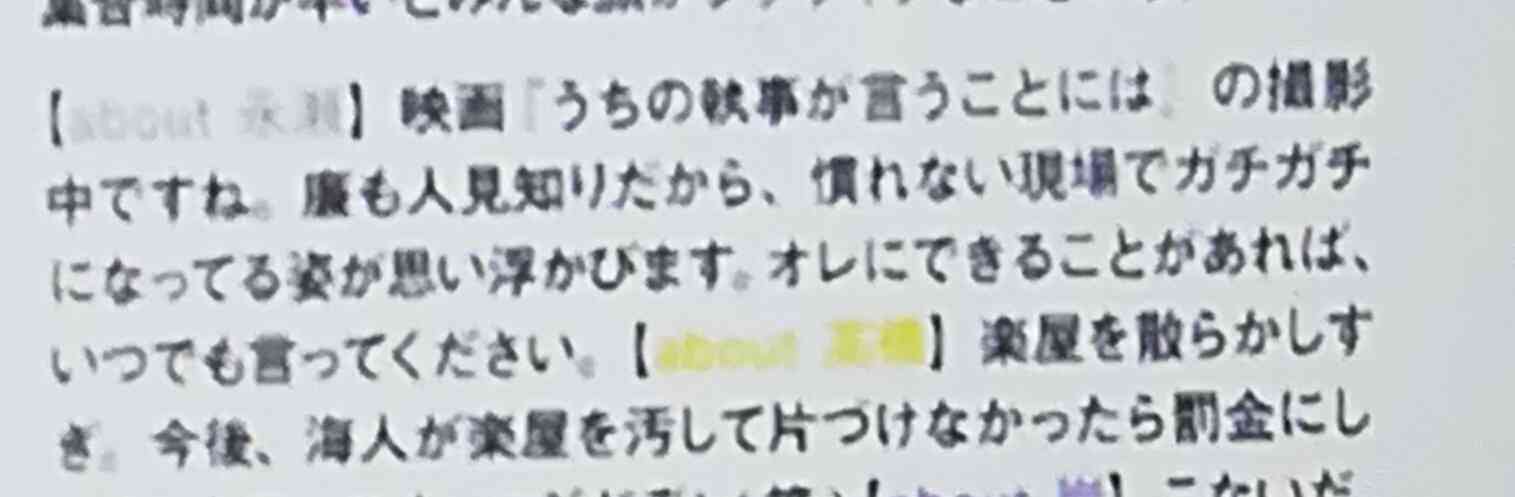 【about 永瀬】映画『うちの執事が言うことには』の撮影
中ですね。廉も人見知りだから、慣れない現場でガチガチ
になってる姿が思い浮かびます。オレにできることがあれば、
いつでも言ってください。【about 高橋】楽屋を散らかしす
ぎ。今後、海人が楽屋を汚して片づけなかったら罰金にし